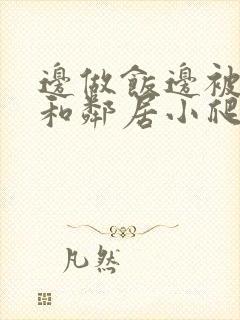 邊做飯邊被
和鄰居小爬
凡然